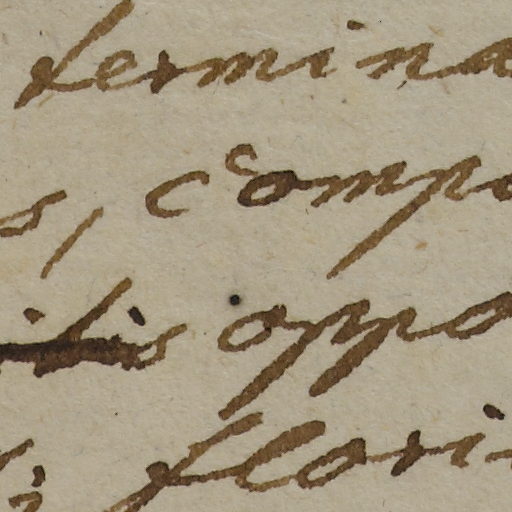 termina
s, compo
oppo
flori